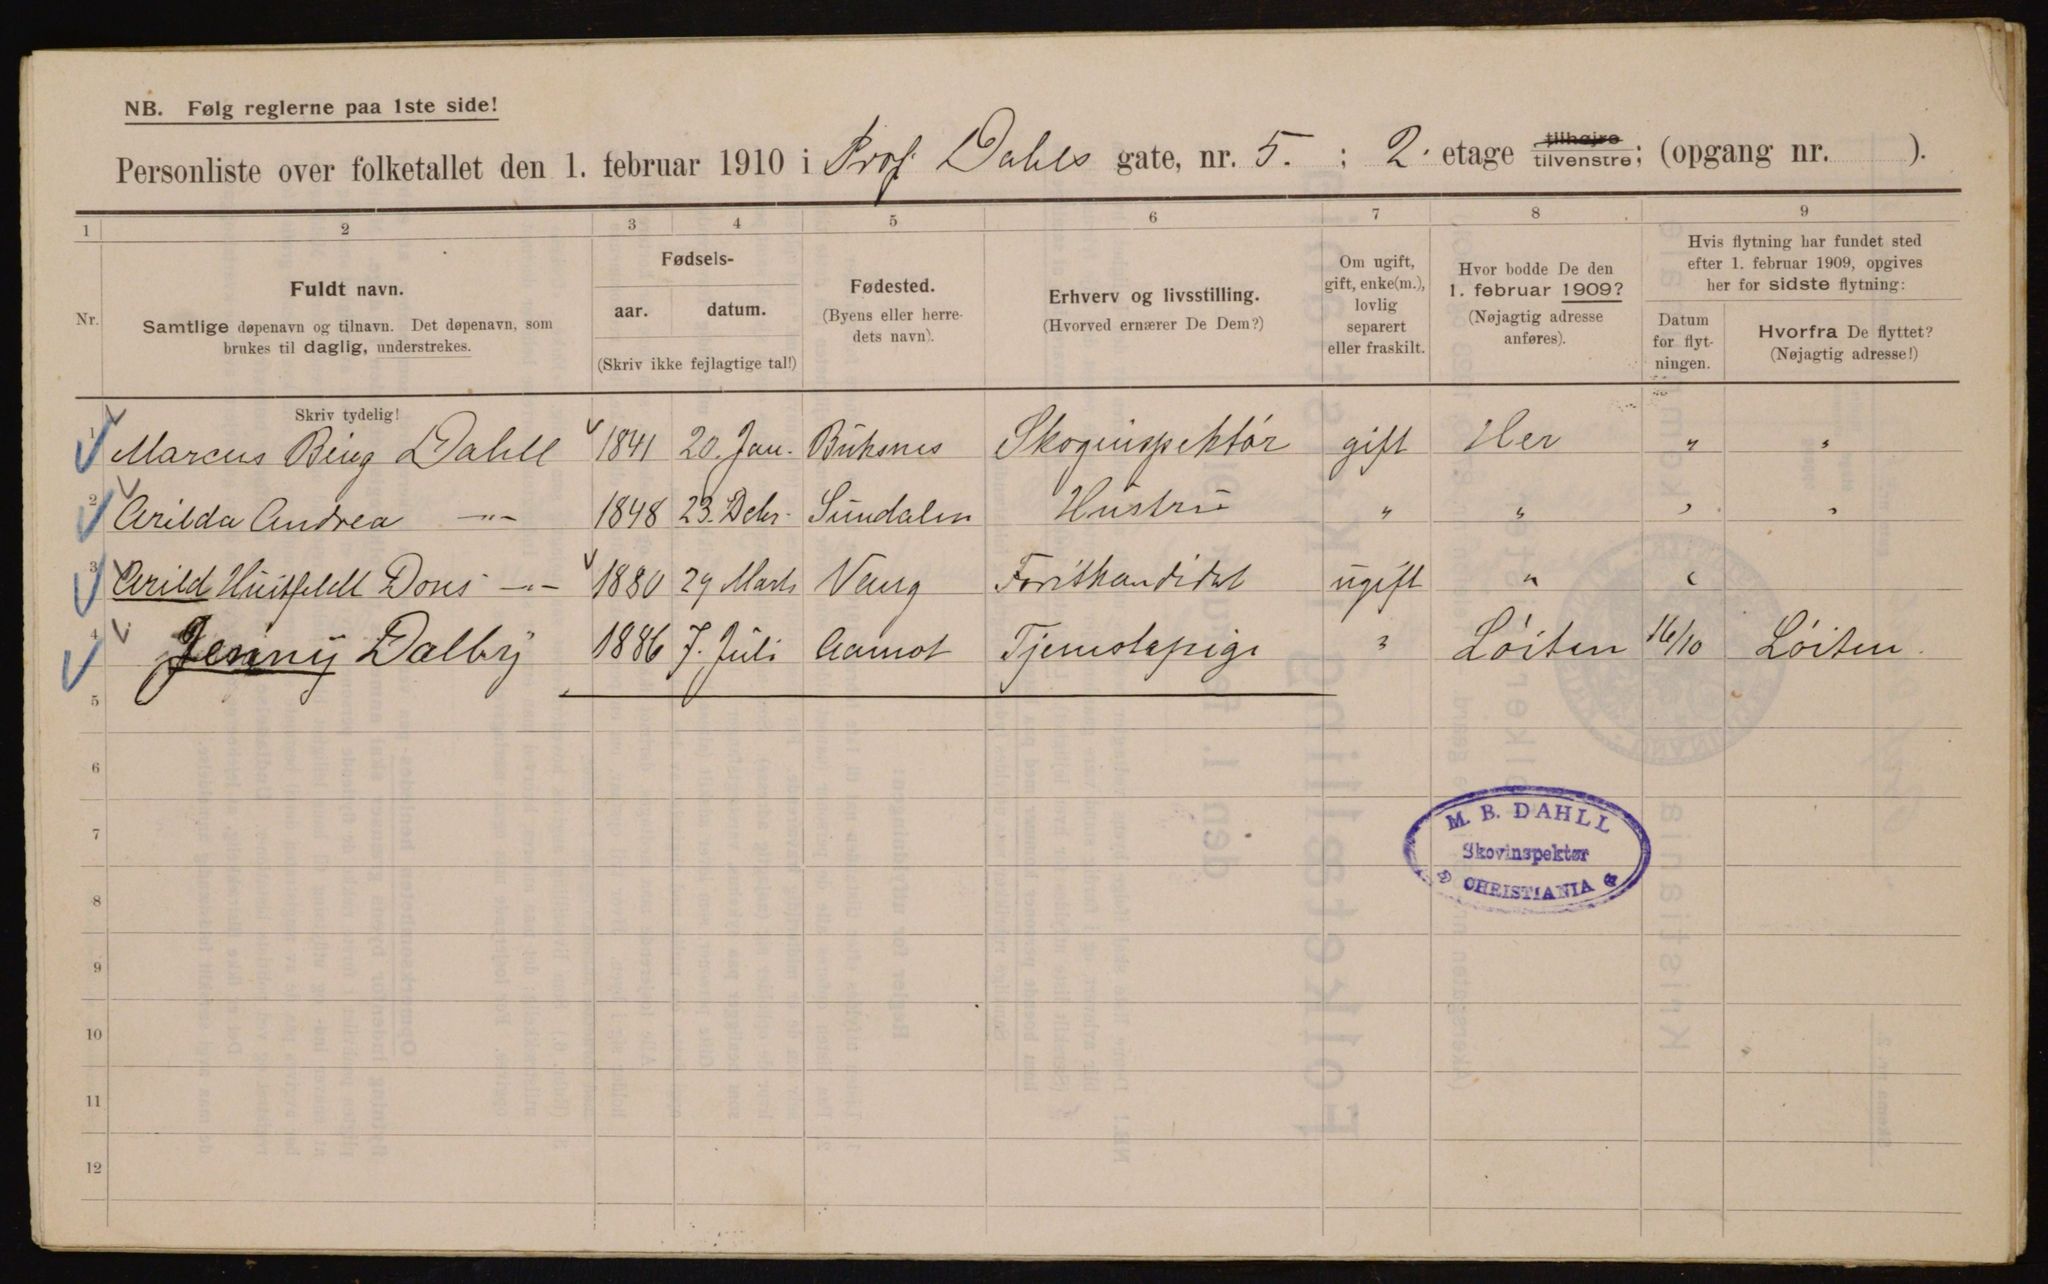 NB. Følg reglerne paa 1ste side!
Personliste over folketallet den 1. februar 1910 i Prof. Dahls gate, nr. 5. ; 2. etage tilhøjre tilvenstre; (opgang nr. ).
1 2 3 4 5 6 7 8 9
Nr.
Fuldt navn.
Samtlige døpenavn og tilnavn. Det døpenavn, som
brukes til daglig, understrekes.
Skriv tydelig!
Fødsels-
aar. datum.
(Skriv ikke fejlagtige tal!)
Fødested.
(Byens eller herre-
dets navn).
Erhverv og livsstilling.
(Hvorved ernærer De Dem?)
Om ugift,
gift, enke(m.),
lovlig
separert
eller fraskilt.
Hvor bodde De den
1. februar 1909?
(Nøjagtig adresse
anføres).
Hvis flytning har fundet sted
efter 1. februar 1909, opgives
her for sidste flytning:
Datum
for flyt-
ningen.
Hvorfra De flyttet?
(Nøjagtig adresse!)
1 Marcus Bing Dahll 1841 20. Jan. Buksnes Skoginspektør gift Her " "
2 Arilda Andrea -"- 1848 23. Debr. Sundalen Hustru " " " "
3 Arild Huitfeldt Dons -"- 1880 29 Marts Vang Forstkandidat ugift " "
4 Jenny Dalby 1886 7. Juli Aamot Tjenstepige " Løiten 16/10 Løiten.
5
6
7
8
9
10
11
12
M. B. DAHLL
Skovinspektør
CHRISTIANIA